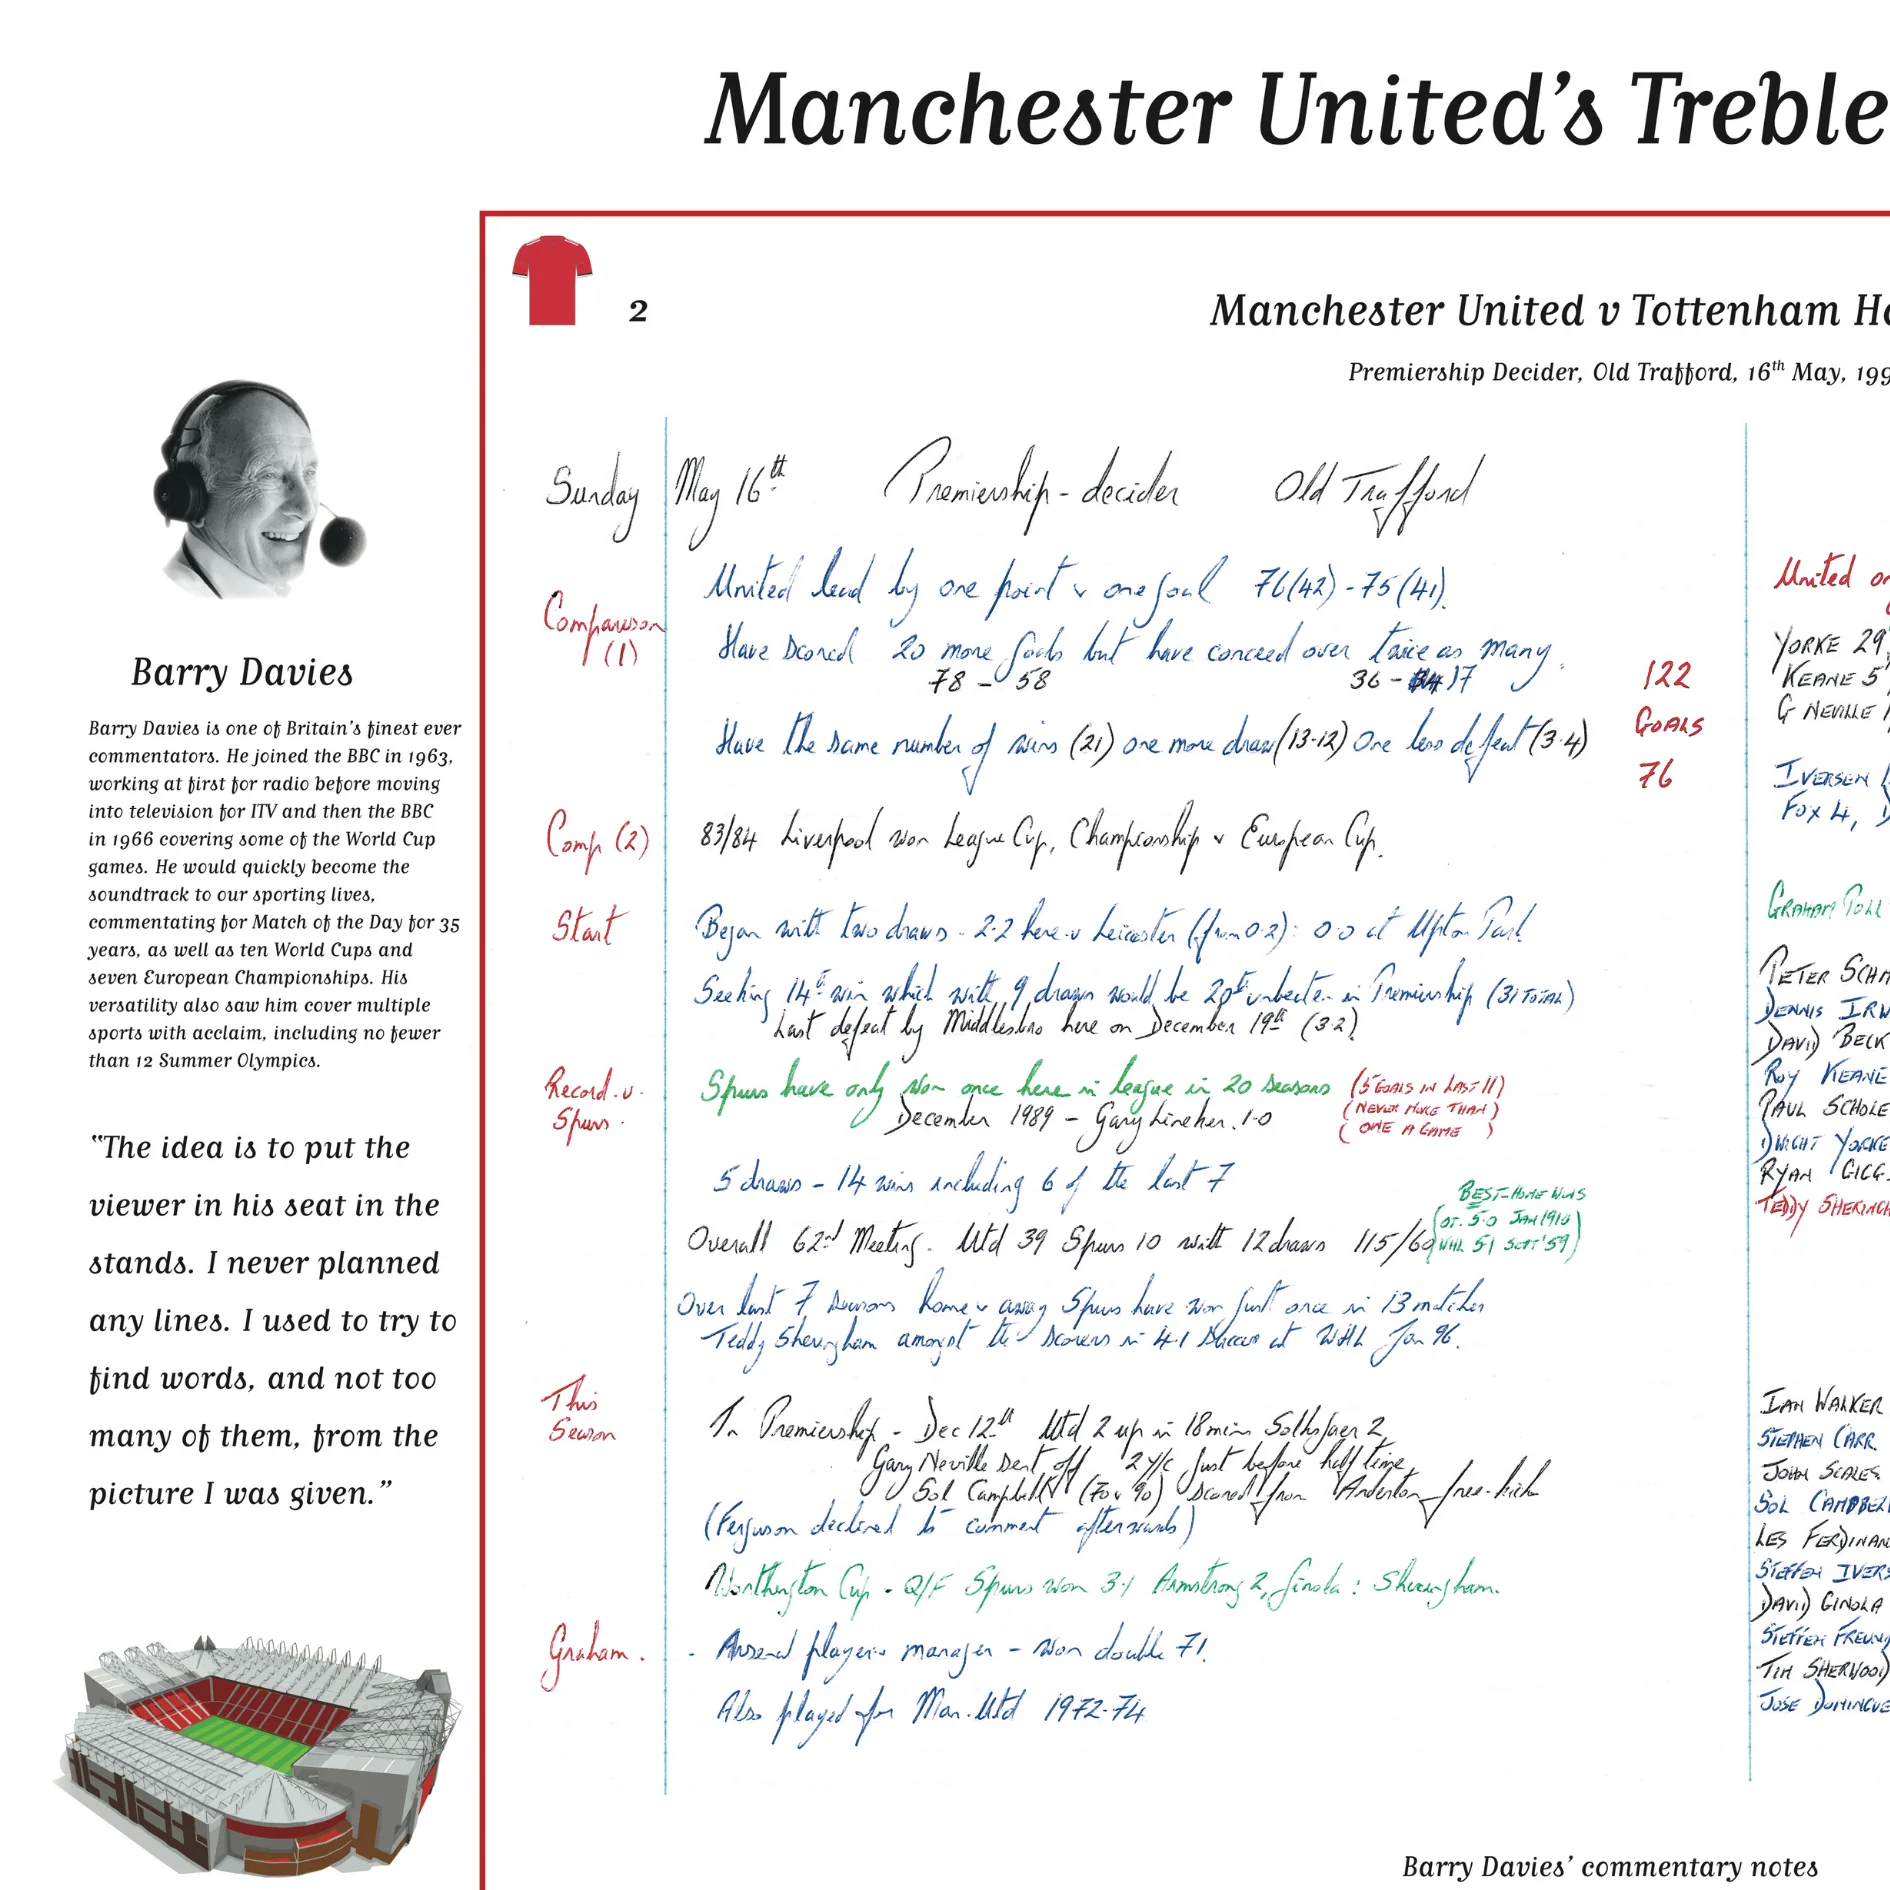 Manchester United's Treble
2
Manchester United v Tottenham Ho
Premiership Decider, Old Trafford, 16th May, 199
Barry Davies
Barry Davies is one of Britain's finest ever
commentators. He joined the BBC in 1963,
working at first for radio before moving
into television for ITV and then the BBC
in 1966 covering some of the World Cup
games. He would quickly become the
soundtrack to our sporting lives,
commentating for Match of the Day for 35
years, as well as ten World Cups and
seven European Championships. His
versatility also saw him cover multiple
sports with acclaim, including no fewer
than 12 Summer Olympics.
"The idea is to put the
viewer in his seat in the
stands. I never planned
any lines. I used to try to
find words, and not too
many of them, from the
picture I was given."
Sunday May 16th Premiership - decider Old Trafford
Comparison
(1)
United lead by one point v one goal 76(42) - 75(41).
Have scored 20 more goals but have conceed over twice as many.
78 - 58 36 - 17
Have the same number of wins (21) one more draw (13-12) One less defeat (3.4)
122
GOALS
76
Comp (2) 83/84 Liverpool won League Cup, Championship v European Cup.
Start Began with two draws - 2-2 here v Leicester (from 0-2): 0-0 at Upton Park
Seeking 14th win which with 9 draws would be 20th unbeaten in Premiership (31 TOTAL)
Last defeat by Middlesbro here on December 19th (3-2)
Record . v .
Spurs .
Spurs have only won once here in league in 20 seasons
December 1989 - Gary Lineker . 1-0
(5 GOALS IN LAST 11)
(NEVER MORE THAN)
( ONE A GAME )
5 draws - 14 wins including 6 of the last 7
Overall 62nd Meeting. Utd 39 Spurs 10 with 12 draws 115/60
BEST-HOME WINS
OT. 5-0 JAN 1910
WHL 5-1 SEPT '59
Over last 7 seasons home v away Spurs have won just once in 13 matches
Teddy Sheringham amongst the scorers in 4-1 success at WHL Jan 96.
This
Season
In Premiership - Dec 12th Utd 2 up in 18 mins Solksjaer 2,
Gary Neville sent off 2 Y/C just before half time,
Sol Campbell (70 v 90) scored from Anderton free-kick
(Ferguson declined to comment afterwards)
Worthington Cup - Q/F Spurs won 3-1 Armstrong 2, Ginola : Sheringham.
Graham . - Arsenal player v manager - won double 71.
Also played for Man. Utd 1972-74
United on
YORKE 29
KEANE 5
G NEVILLE
IVERSEN
FOX 4,
GRAHAM POLL
PETER SCHM
DENNIS IRW
DAVID BECK
ROY KEANE
PAUL SCHOLE
DWIGHT YORKE
RYAN GIGG
TEDDY SHERINGH
IAN WALKER
STEPHEN CARR
JOHN SCALES
SOL CAMPBELL
LES FERDINAN
STEFFEN IVERS
DAVID GINOLA
STEFFEN FREUND
TIM SHERWOOD
JOSE DOMINGUE
Barry Davies' commentary notes